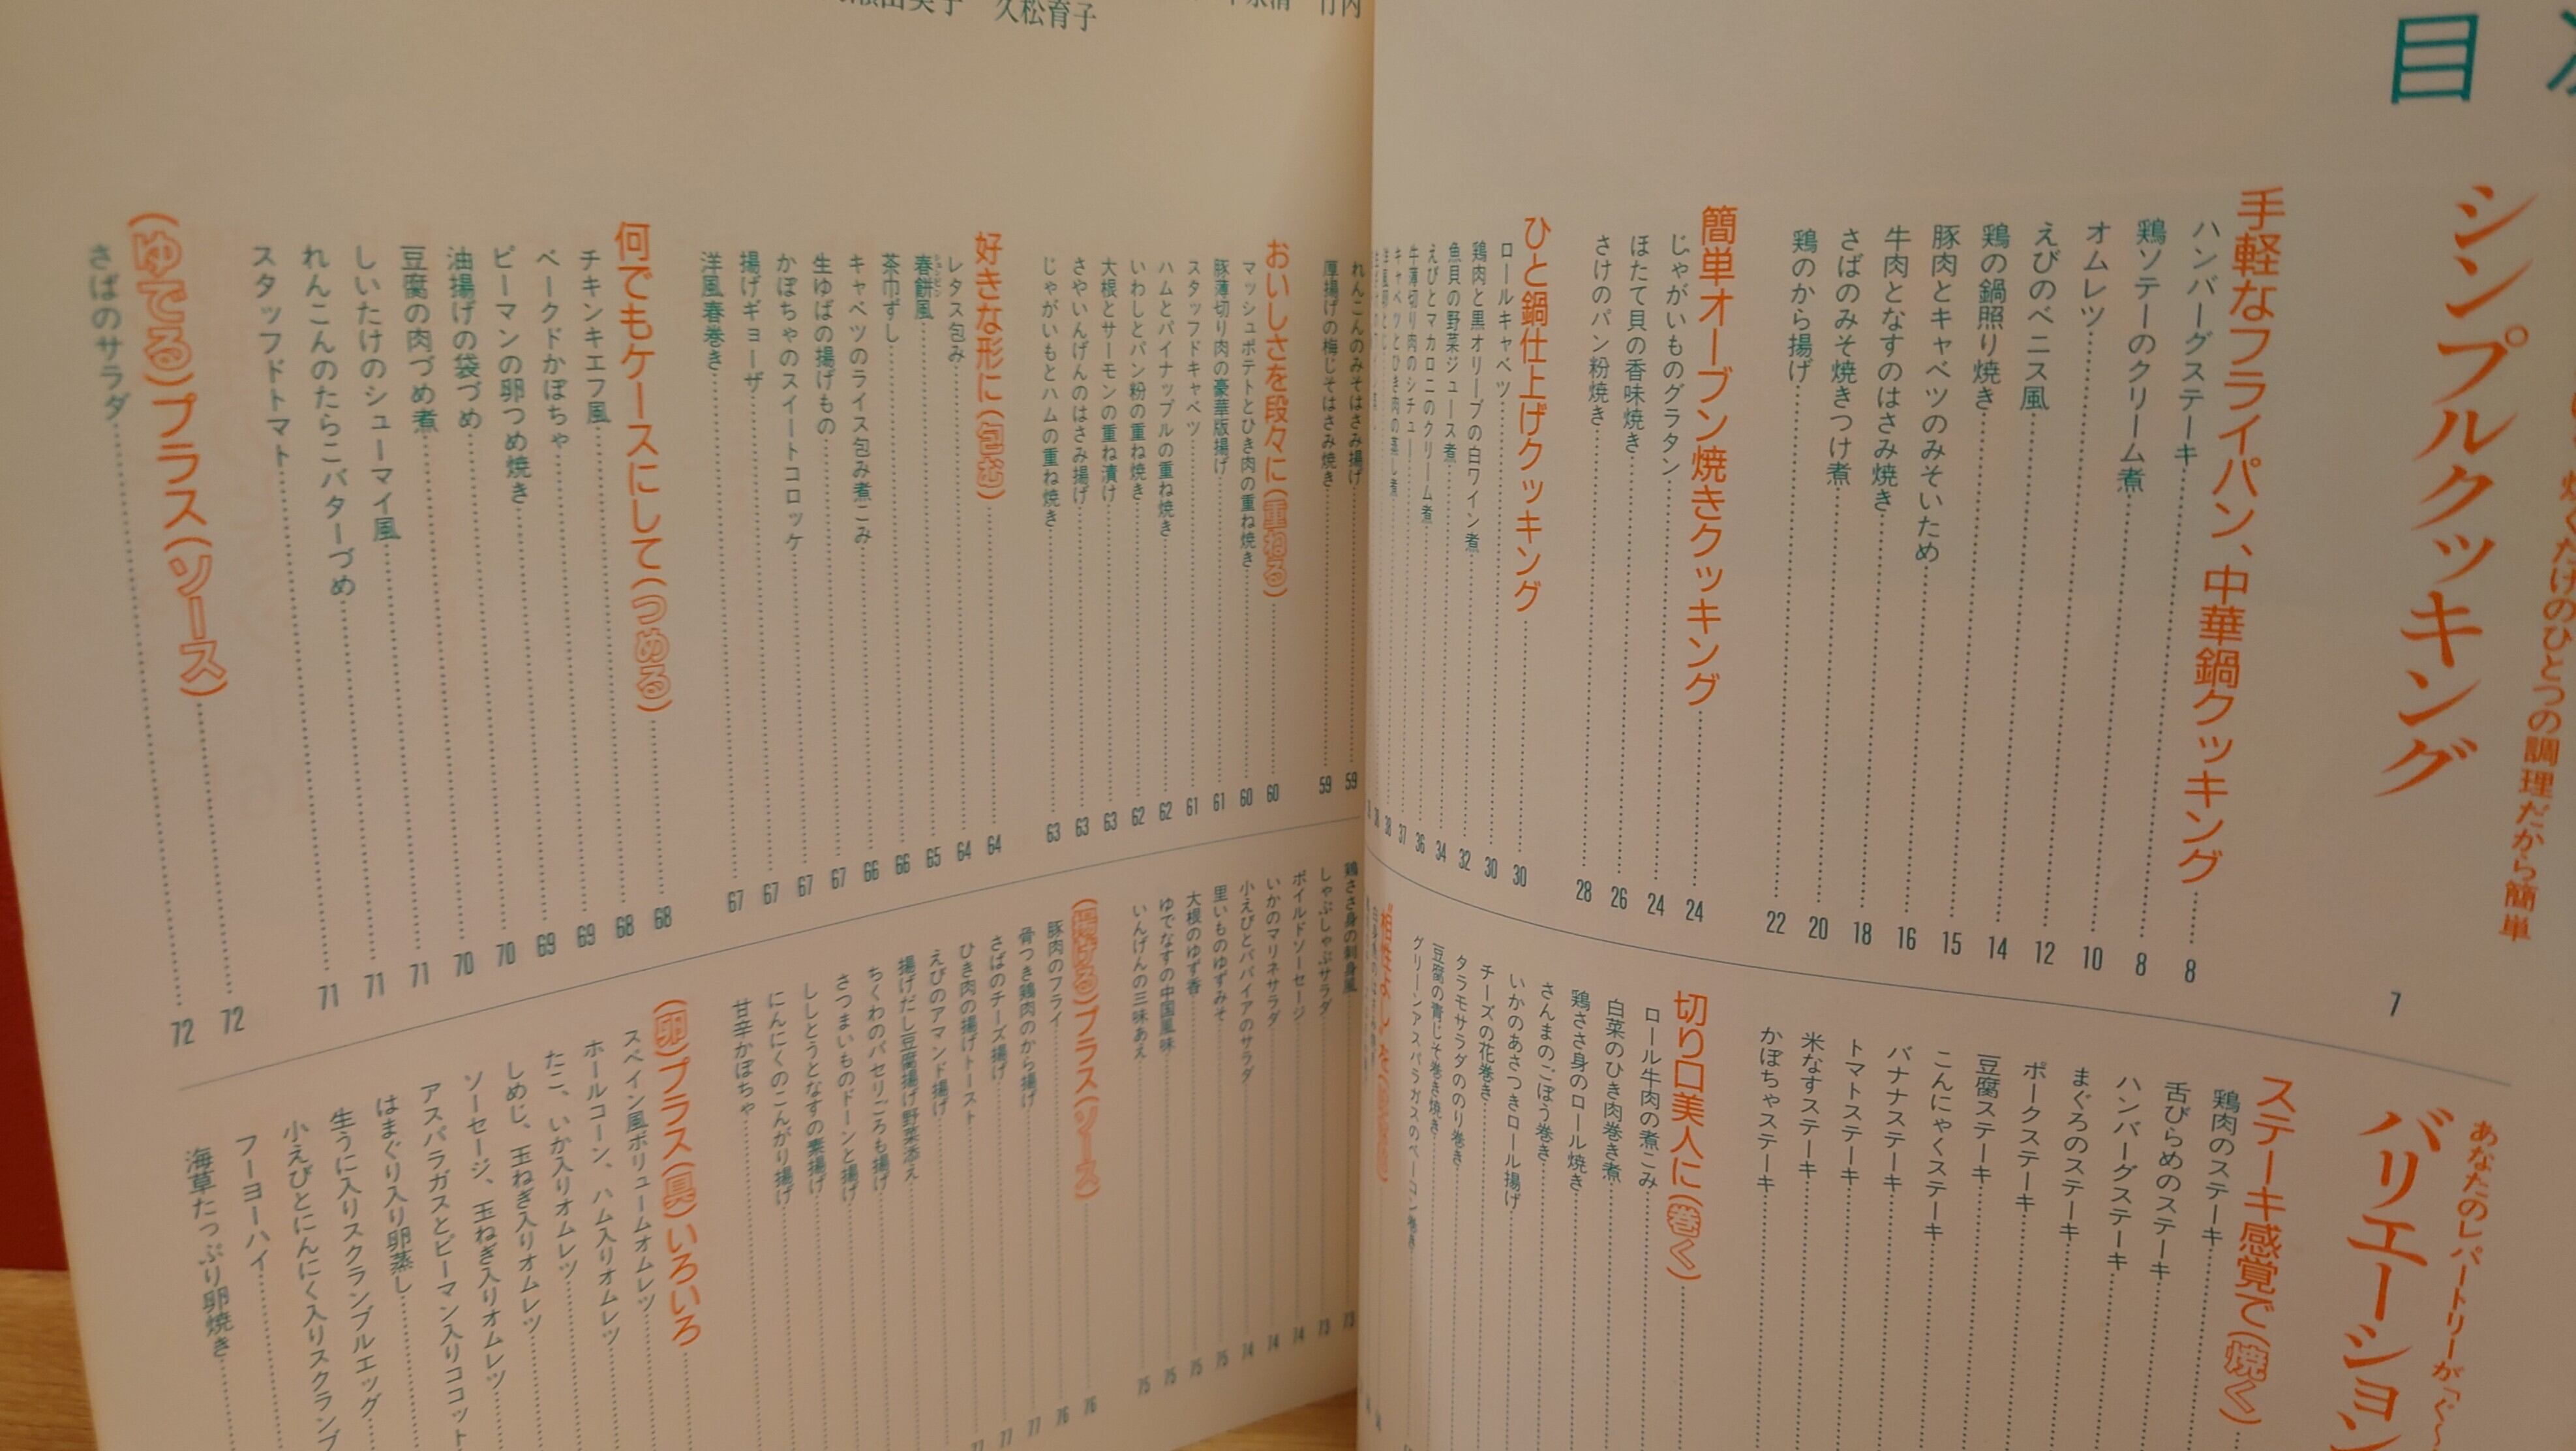 目
シンプルクッキング 7
手軽なフライパン、中華鍋クッキング 8
ハンバーグステーキ 8
鶏ソテーのクリーム煮 10
オムレツ 12
えびのベニス風 14
鶏の鍋照り焼き 15
豚肉とキャベツのみそいため 16
牛肉となすのはさみ焼き 18
さばのみそ焼きつけ煮 20
鶏のから揚げ 22
簡単オーブン焼きクッキング 24
じゃがいものグラタン 24
ほたて貝の香味焼き 26
さけのパン粉焼き 28
ひと鍋仕上げクッキング 30
ロールキャベツ 30
鶏肉と黒オリーブの白ワイン煮 32
魚貝の野菜ジュース煮 34
えびとマカロニのクリーム煮 36
牛薄切り肉のシチュー 37
キャベツとひき肉の蒸し煮 38
あなたのレパートリーが
バリエーション
ステーキ感覚で(焼く)
鶏肉のステーキ
舌びらめのステーキ
ハンバーグステーキ
まぐろのステーキ
ポークステーキ
豆腐ステーキ
こんにゃくステーキ
バナナステーキ
トマトステーキ
米なすステーキ
かぼちゃステーキ
切り口美人に(巻く)
ロール牛肉の煮こみ
白菜のひき肉巻き煮
鶏ささ身のロール焼き
さんまのごぼう巻き
いかのあさつきロール揚げ
チーズの花巻き
タラモサラダののり巻き
豆腐の青じそ巻き焼き
グリーンアスパラガスのベーコン巻き
久松育子
れんこんのみそはさみ揚げ 59
厚揚げの梅じそはさみ焼き 59
おいしさを段々に(重ねる) 60
マッシュポテトとひき肉の重ね焼き 60
豚薄切り肉の豪華版揚げ 61
スタッフドキャベツ 61
ハムとパイナップルの重ね焼き 62
いわしとパン粉の重ね焼き 62
大根とサーモンの重ね漬け 63
さやいんげんのはさみ揚げ 63
じゃがいもとハムの重ね焼き 63
好きな形に(包む) 64
レタス包み 64
春餅風 65
茶巾ずし 66
キャベツのライス包み煮こみ 66
生ゆばの揚げもの 67
かぼちゃのスイートコロッケ 67
揚げギョーザ 67
洋風春巻き 67
何でもケースにして(つめる) 68
チキンキエフ風 68
ベークドかぼちゃ 69
ピーマンの卵つめ焼き 69
油揚げの袋づめ 70
豆腐の肉づめ煮 70
しいたけのシューマイ風 71
れんこんのたらこバターづめ 71
スタッフドトマト 71
(ゆでる)プラス(ソース) 72
さばのサラダ 72
鶏ささ身の刺身風 73
しゃぶしゃぶサラダ 73
ボイルドソーセージ 74
いかのマリネサラダ 74
小えびとパパイアのサラダ 74
里いものゆずみそ 75
大根のゆず香 75
ゆでなすの中国風味 75
いんげんの三味あえ 75
(揚げる)プラス(ソース) 76
豚肉のフライ 76
骨つき鶏肉のから揚げ 77
さばのチーズ揚げ 77
ひき肉の揚げトースト
えびのアマンド揚げ
揚げだし豆腐揚げ野菜添え
ちくわのパセリごろも揚げ
さつまいものドーンと揚げ
ししとうとなすの素揚げ
にんにくのこんがり揚げ
甘辛かぼちゃ
(卵)プラス(具)いろいろ
スペイン風ボリュームオムレツ
ホールコーン、ハム入りオムレツ
たこ、いか入りオムレツ
しめじ、玉ねぎ入りオムレツ
ソーセージ、玉ねぎ入りオムレツ
アスパラガスとピーマン入りココット
はまぐり入り卵蒸し
生うに入りスクランブルエッグ
小えびとにんにく入りスクランブ
フーヨーハイ
海草たっぷり卵焼き